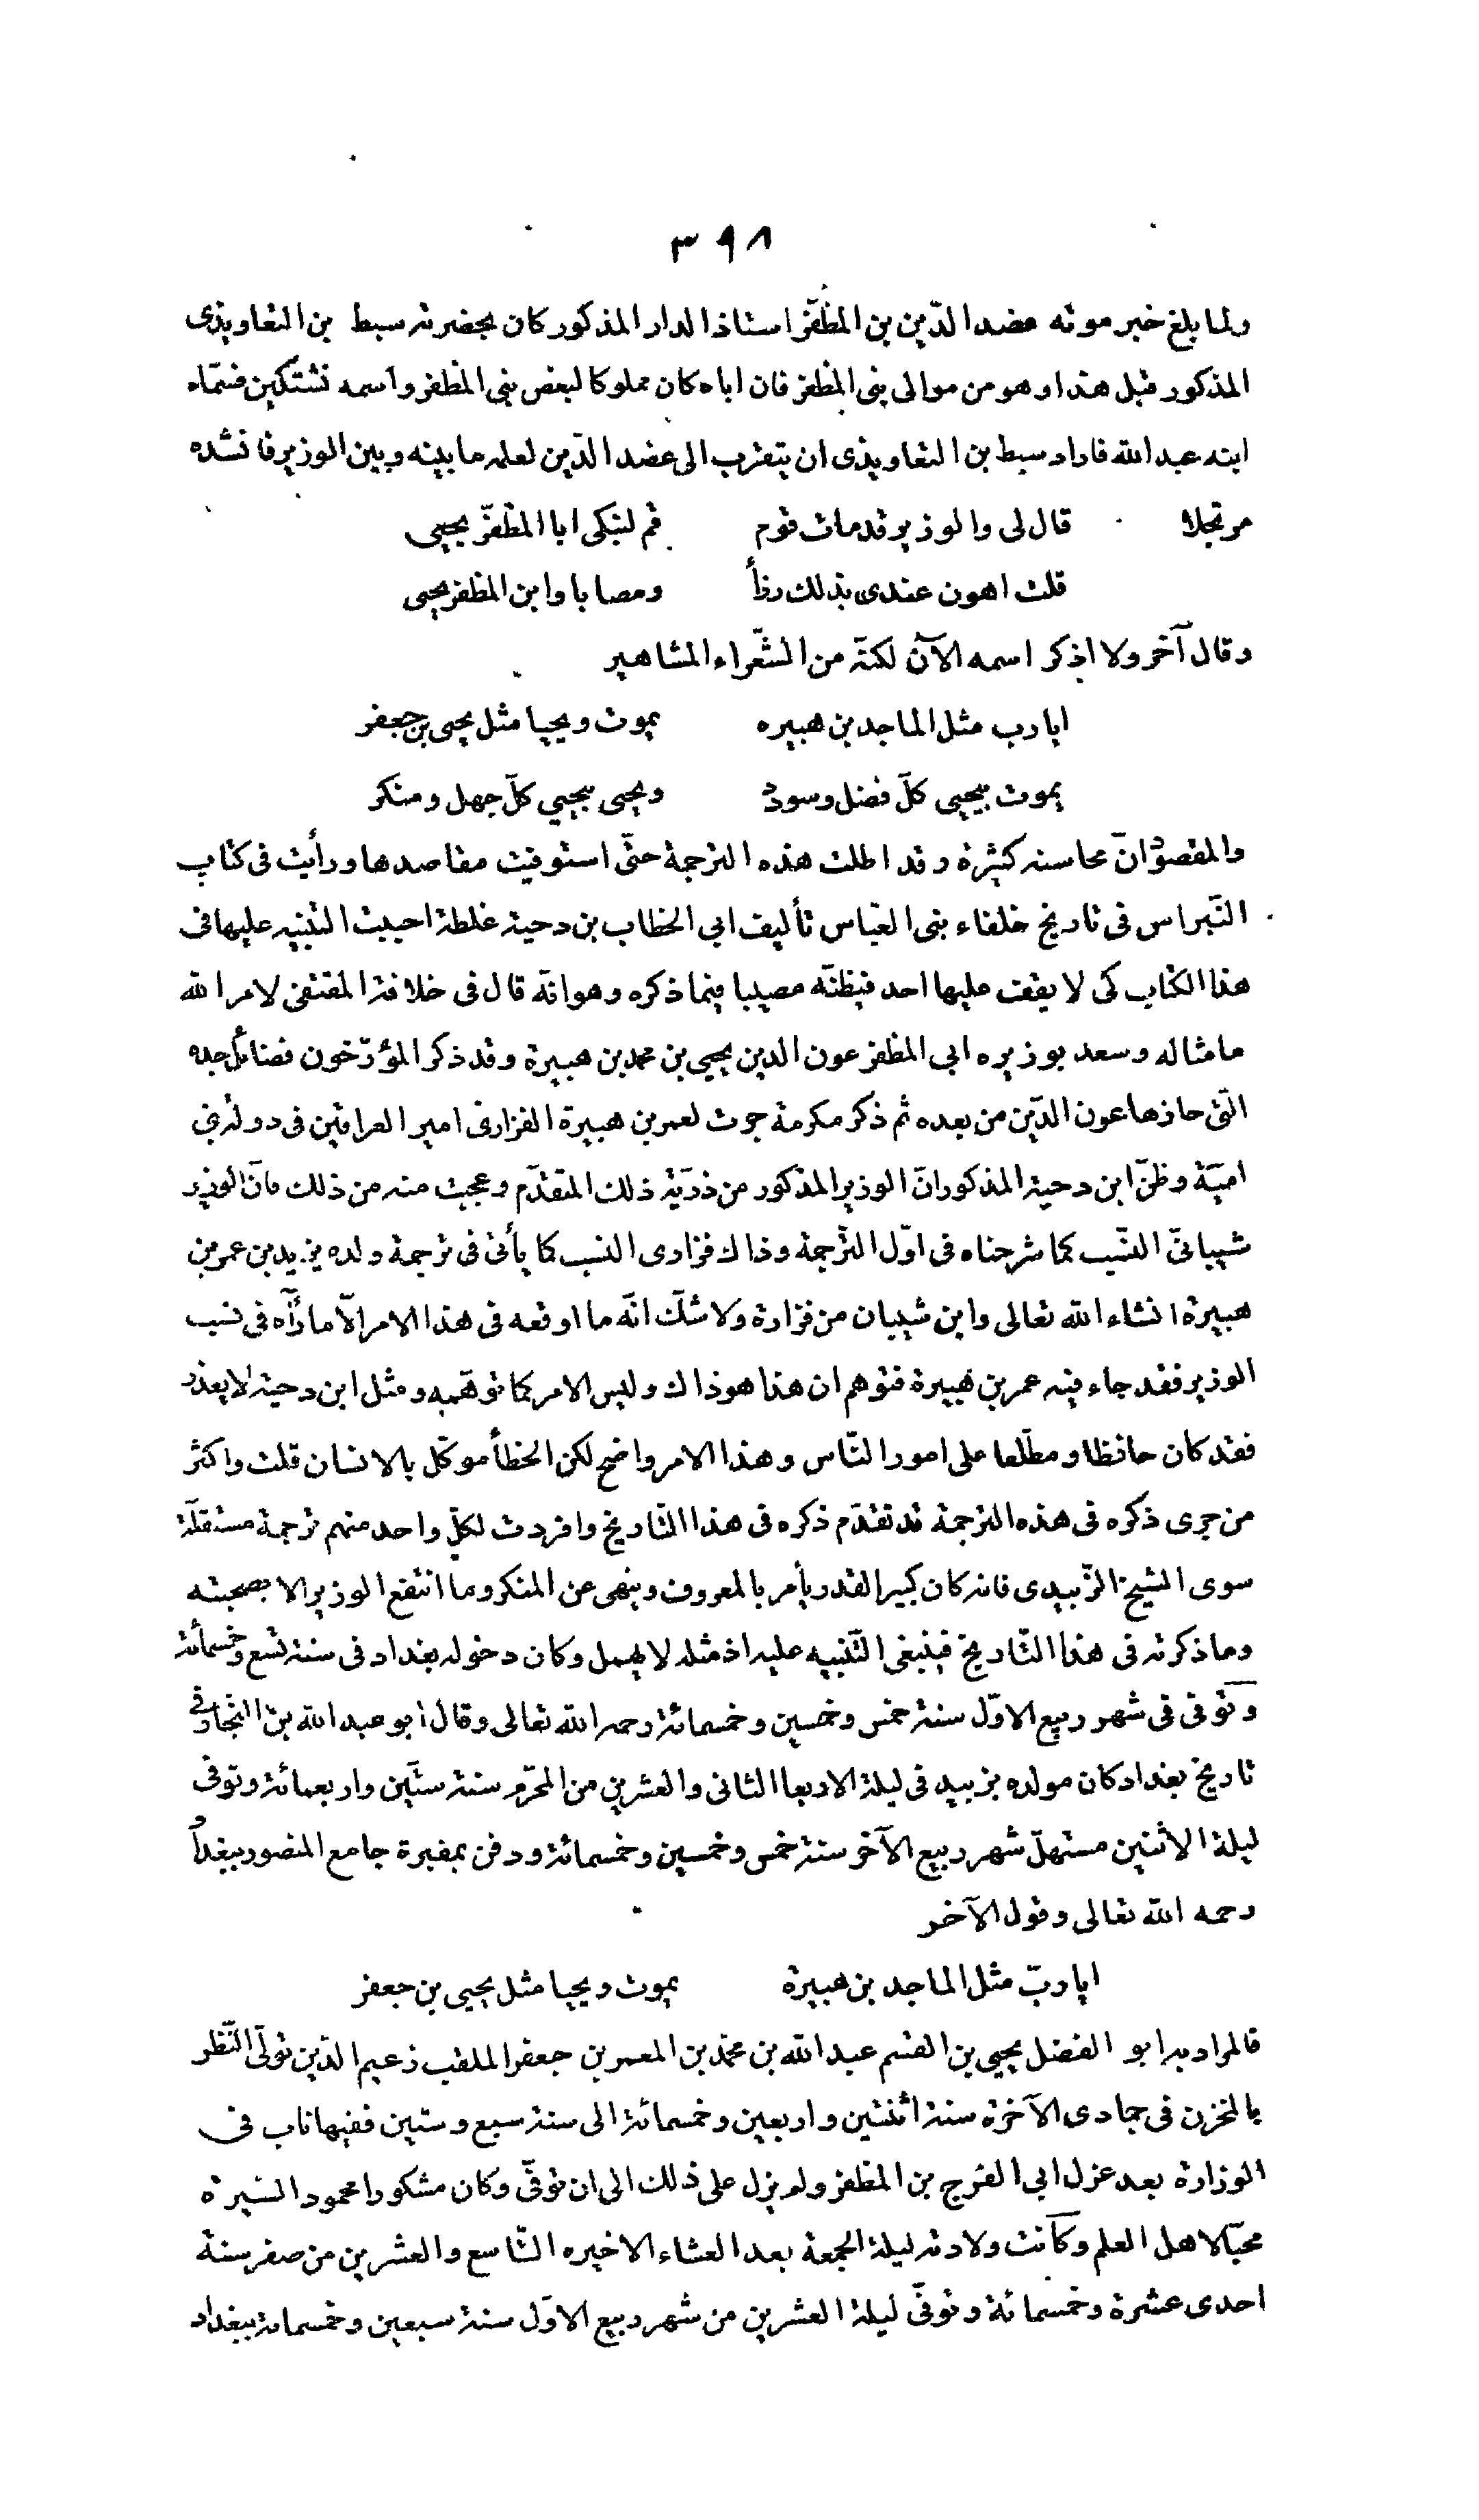 ٣٩٨
ولما بلغ خبر موته عضد الدّين بن المظفّر استاذ الدار المذكور كان بحضرته سبط بن التعاويذى
المذكور قبل هذا وهو من موالى بنى المظفر فان اباه كان مملوكا لبعض بنى المظفر واسمه نشتكين فسمّاه
ابنه عبد الله فاراد سبط بن التعاويذى ان يتقرب الى عضد الدّين لعلمه ما بينه وبين الوزير فانشده
مرتجلا قال لى والوزير قد مات قوم قم لنبكى ابا المظفّر يحيى
قلت اهون عندى بذلك رزأ ومصابا وابن المظفر يحيى
وقال آخر ولا اذكر اسمه الآن لكنّه من الشّعراء المشاهير
ايا رب مثل الماجد بن هبيره يموت ويحيا مثل يحيى بن جعفر
يموت بيحيى كلّ فضل وسودد ويحيى بيحيي كلّ جهل ومنكر
والمقصود انّ محاسنه كثيرة وقد اطلت هذه الترجمة حتّى استوفيت مقاصدها ورأيت فى كتاب
النّبراس فى تاريخ خلفاء بنى العبّاس تأليف ابي الخطاب بن دحية غلطة احببت التنبيه عليها فى
هذا الكتاب كى لا يقف عليها احد فيظنّه مصيبا فيما ذكره وهو انّه قال فى خلافة المقتفى لامر الله
ما مثاله وسعد بوزيره ابى المظفر عون الدين يحيي بن محمد بن هبيرة وقد ذكر المؤرّخون فضائل جده
التى حازها عون الدّين من بعده ثم ذكر مكرمة جرت لعمر بن هبيرة الفزارى امير العراقين فى دولة بني
اميّة وظنّ ابن دحية المذكور انّ الوزير المذكور من ذرّيّة ذلك المتقدّم وعجبت منه من ذلك فانّ الوزير
شيبانىّ النّسب كما شرحناه فى اوّل التّرجمة وذاك فزارى النسب كما يأتى فى ترجمة ولده يزيد بن عمر بن
هبيرة انشاء الله تعالى واين شيبان من فزارة ولا شكّ انّه ما اوقعه فى هذا الامر الّا ما رآه فى نسب
الوزير فقد جاء فيه عمر بن هبيرة فتوهم ان هذا هو ذاك وليس الامر كما توهّمه ومثل ابن دحية لا يعذر
فقد كان حافظا ومطّلعا على امور النّاس وهذا الامر واضح لكن الخطأ موكّل بالانسان قلت واكثر
من جرى ذكره فى هذه الترجمة قد تقدّم ذكره فى هذا التّاريخ وافردت لكلّ واحد منهم ترجمة مستقلّة
سوى الشيخ الزّبيدى فانه كان كبير القدر يأمر بالمعروف وينهى عن المنكر وما انتفع الوزير الا بصحبته
وما ذكرته فى هذا التّاريخ فينبغى التّنبيه عليه اذ مثله لا يهمل وكان دخوله بغداد فى سنة تسع وخمسمائة
وتوفى فى شهر ربيع الاوّل سنة خمس وخمسين وخمسمائة رحمه الله تعالى وقال ابو عبد الله بن النجار فى
تاريخ بغداد كان مولده بزبيد فى ليلة الاربعا الثانى والعشرين من المحرّم سنة ستّين واربعمائة وتوفى
ليلة الاثنين مستهلّ شهر ربيع الآخر سنة خمس وخمسين وخمسمائة ودفن بمقبرة جامع المنصور ببغداد
رحمه الله تعالى وقول الآخر
ايا ربّ مثل الماجد بن هبيرة يموت ويحيا مثل يحيي بن جعفر
فالمراد به ابو الفضل يحيي بن القسم عبد الله بن محمّد بن المعمر بن جعفر الملقب زعيم الدّين تولّى النّظر
بالمخزن فى جمادى الآخرة سنة اثنتين واربعين وخمسمائة الى سنة سبع وستين ففيها ناب فى
الوزارة بعد عزل ابي الفرج بن المظفر ولم يزل على ذلك الى ان توفّى وكان مشكورا محمود السّيرة
محبّا لاهل العلم وكانت ولادته ليلة الجمعة بعد العشاء الاخيره التّاسع والعشرين من صفر سنة
احدى عشرة وخمسمائة وتوفّى ليلة العشرين من شهر ربيع الاوّل سنة سبعين وخمسمائة ببغداد